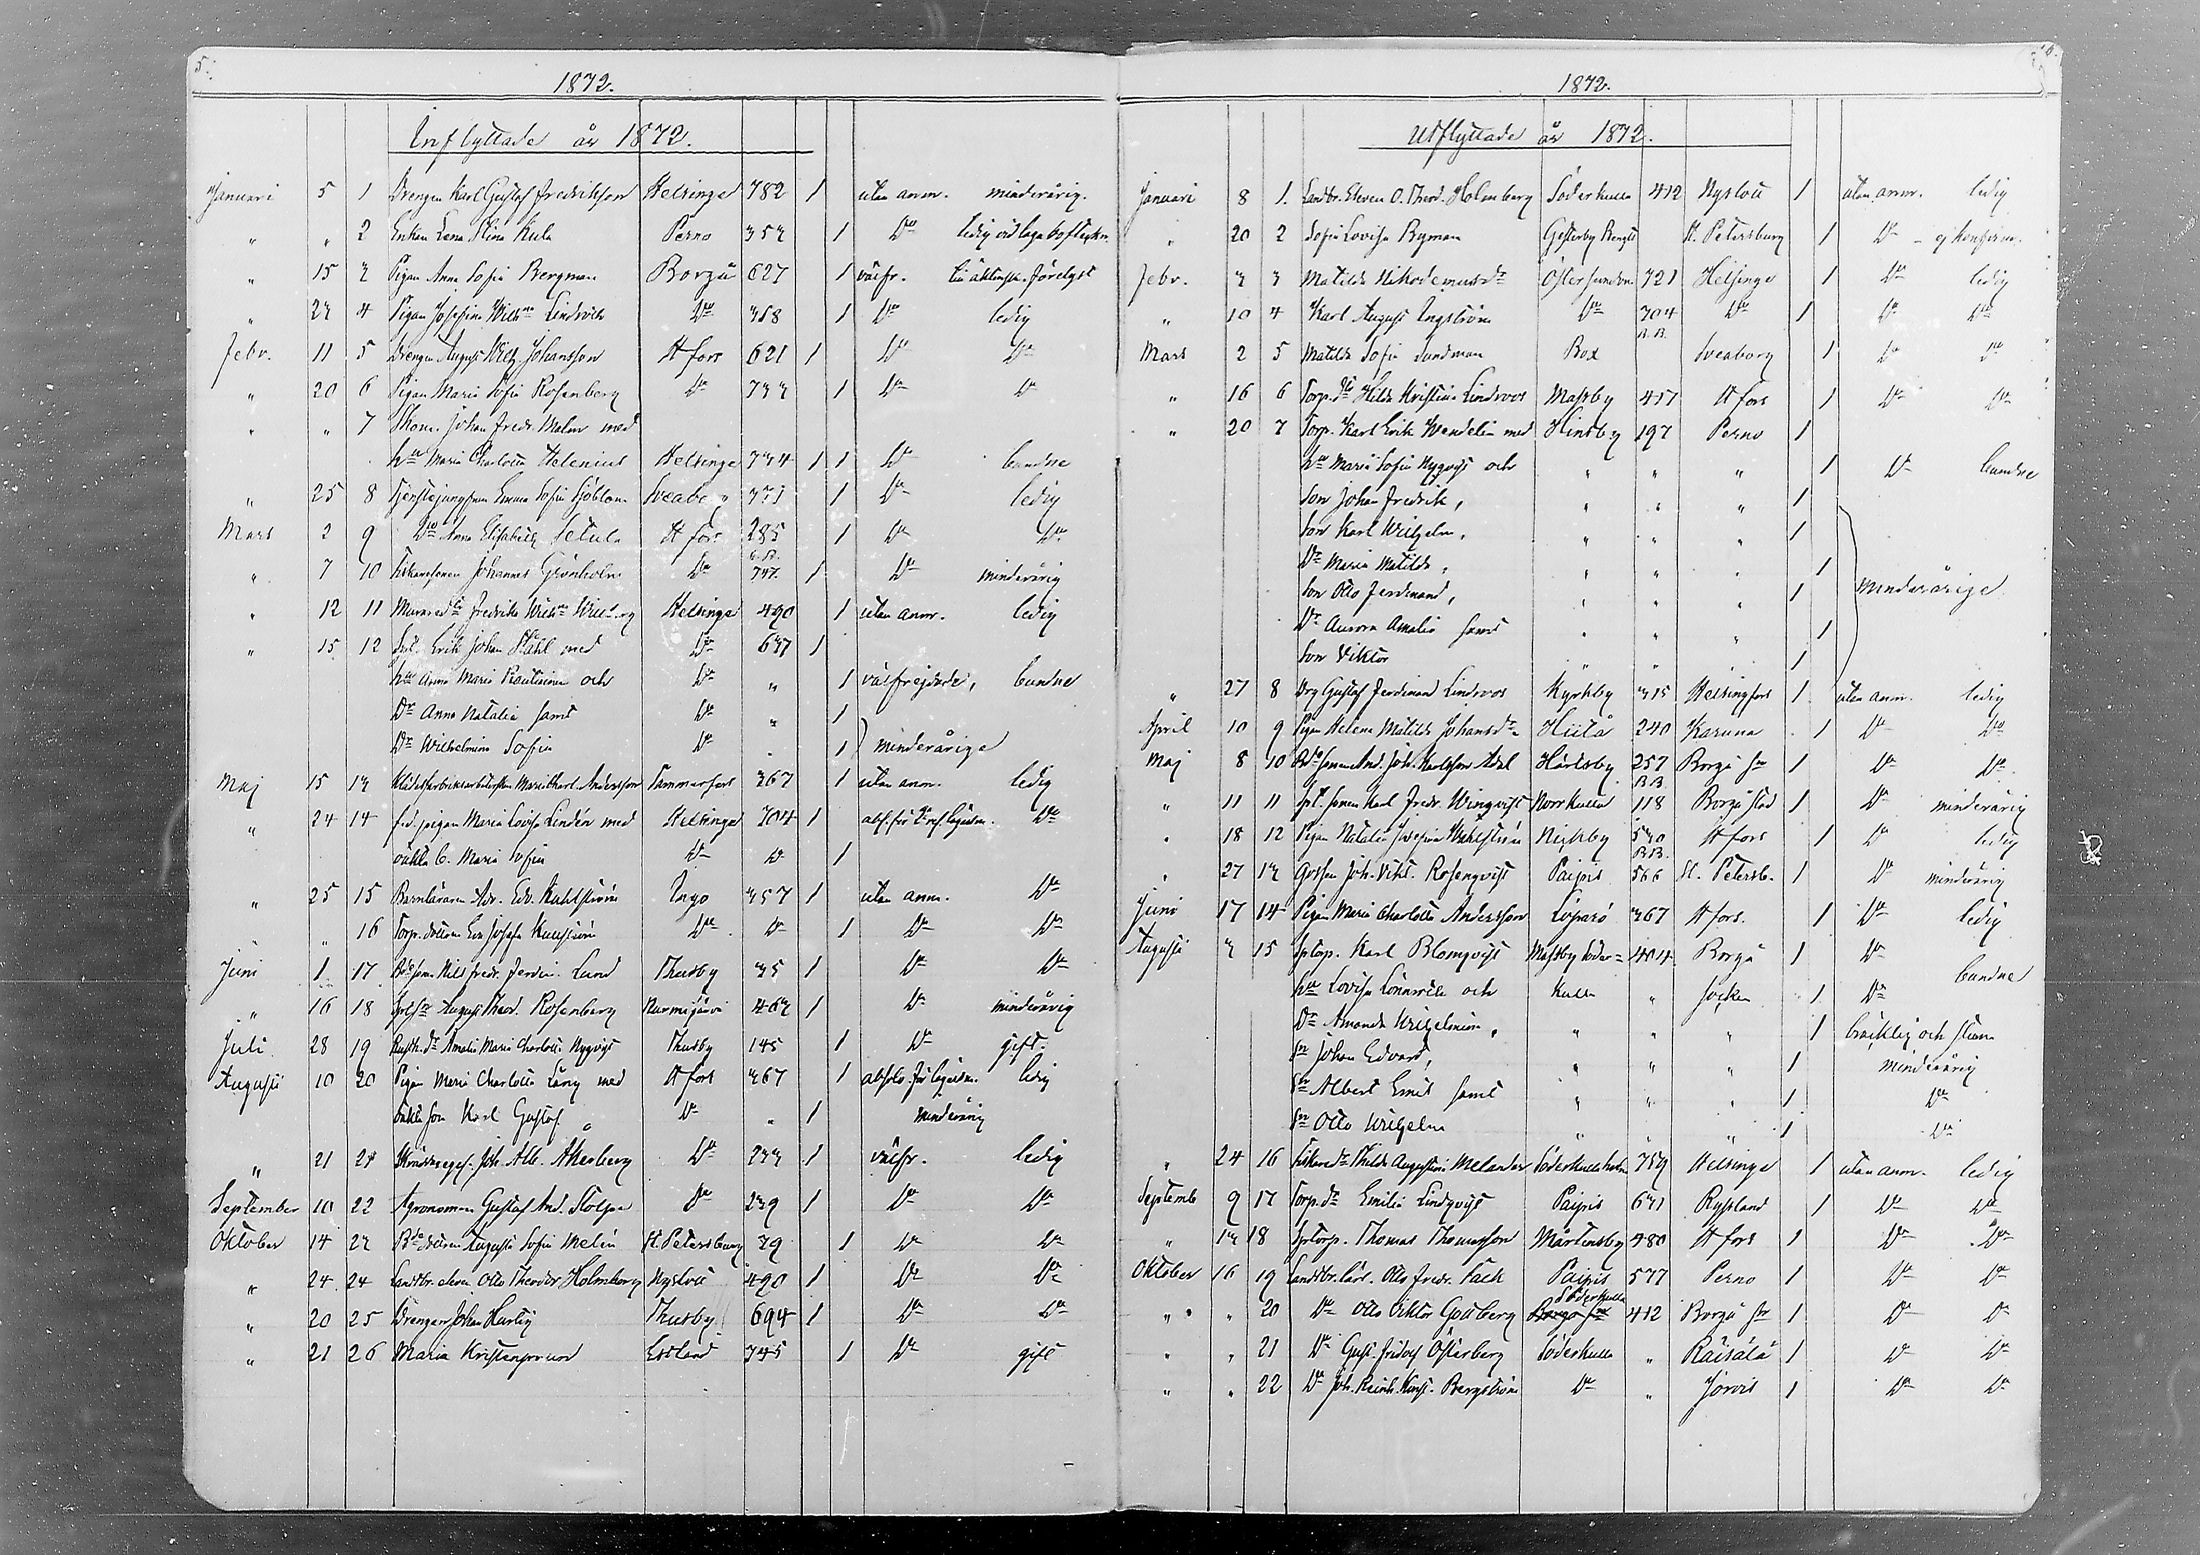 5.
1872.
Inflyttade år 1872.
Januari 5 1 Drengen Karl Gustaf Fredrikson Helsinge 782 1 utan anm. minderårig.
" " 2 Enkan Lena Stina Kula Perno 353 1 Do ledig
" 15 3 Pigan Anna Sofia Bergman Borgå 627 1 välfr.
" 23 4 Pigan Josefina Wilhna Lindvik Do 318 1 Do ledig
Febr. 11 5 Drengen August Wilh. Johansson H fors 621 1 Do Do
" 20 6 Pigan Maria Sofia Rosenberg Do 733 1 Do Do
" " 7 Skom. Johan Fredr. Malm med
hu Maria Charlotta Helenius Helsinge 734 1 1 Do bundne
" 25 8 Tjenstejungfrun Emma Sofia Sjöblom Sveaborg 371 1 Do ledig
Mars 2 9 Do Anna Elisabeth Setula H fors 285 1 Do Do
" 7 10 Fiskaresonen Johannes Grönholm Do 747. 1 Do minderårig
" 12 11 Murared. Fredrika Wilhna Helsinge 490 1 utan anm. ledig
" 15 12 Erik Johan Ståhl med Do 637 1
hu Anna Maria Rautiainen och Do " 1 välfrejdade, bundne
Dr Anna Natalia samt Do " 1
Dr Wilhelmina Sofia Do " 1 minderåriga
Maj 15 13 Klädesfabriksarbeterskan Maria Charl. Andersson Tammerfors 367 1 utan anm. ledig
" 24 14 f.d. pigan Maria Lovisa Lindén med Helsinge 704 1 Do
oäkta b. Maria Sofia Do Do 1
" 25 15 Barnläraren Adr. Edv. Kuhlström Ingo 357 1 utan anm. Do
" 16 Torp. dottren Eva Josefa Kuhlström Do Do 1 Do Do
Juni 1 17 Bdesonen Nils Fredr. Ferdin. Lund Thusby 35 1 Do Do
" 16 18 August Theod. Rosenberg Nurmijärvi 463 1 Do minderårig
Juli 28 19 Rusth. dr Amalia Maria Charlotta Nygvist Thusby 145 1 Do gift.
Augusti 10 20 Pigan Maria Charlotta Lång med H fors 367 1 ledig
oäkta son Karl Gustaf Do " 1 minderårig
" 21 21 Skräddareges. Joh. Alb. Åkerberg Do 233 1 välfr. ledig
September 10 22 Agronomen Gustaf And. Stolpe Do 239 1 Do Do
Oktober 14 23 Bdedottren Augusta Sofia Melin St. Petersburg 39 1 Do Do
" 24 24 Landtbr. eleven Otto Theodor Holmberg Nyslott 490 1 Do Do
" 20 25 Drengen Johan Hurtig Thusby 694 1 Do Do
" 21 26 Maria Kristensprund Estland 745 1 Do gift
1872.
Utflyttade år 1872.
Januari 8 1. Landtbr. Eleven O. Theod. Holmberg Söderkulla 412 Nyslott 1 utan anm. ledig
" 20 2 Sofia Lovisa Byman Gesterby Bengts St. Petersburg 1 Do ej konfirm.
Febr. 3 3 Matilda Nikodemusdr Östersundom 721 Helsinge 1 Do ledig
" 10 4 Karl August Engström Do 704 Do 1 Do Do
Mars 2 5 Matilda Sofia Sundman Box B.B. Sveaborg 1 Do Do
" 16 6 Torp. dr Hilda Kristina Lindroos Massby 457 H fors 1 Do Do
" 20 7 Torp. Karl Erik Wendelin med Hindsby 197 Perno 1
hu Maria Sofia Nyqvist och " " " 1 Do bundne
Son Johan Fredrik, " " " 1
Son Karl Wilhelm, " " " 1
Dr Maria Matilda, " " " 1
Son Otto Ferdinand, " " " 1 minderåriga
Dr Aurora Amalia samt " " " 1
Son Viktor " " " 1
" 27 8 Drg Gustaf Ferdinand Lindroos Kyrkby 315 Helsingfors 1 utan anm. ledig
April 10 9 Pigan Helena Matilda Johansdr Hiitå 240 Karuna 1 Do Do
Maj 8 10 Bdesonen And. Joh. Karlsson Adel Hårlsby 257 Borgå sn 1 Do Do
" 11 11 Spt. sonen Karl Fredr. Winqvist Norrkulla B.B. 118 Borgå stad 1 Do minderårig
" 18 12 Pigan Natalia Josefina Wahlström Nickby 530 H fors 1 Do ledig
" 27 13 Gossen Joh. Vikt. Rosenqvist Paipis B.B. 566 St. Petersb. 1 Do minderårig
Juni 17 14 Pigan Maria Charlotta Andersson Löparö 367 H fors. 1 Do ledig
Augusti 3 15 Sptorp. Karl Blomqvist Massby Söder= 404 Borgå 1 Do
hu Lovisa Lönnroth och kulla " socken 1 Do bundne
Dr Amanda Wilhelmina, " " " 1 bräcklig och stum
Sn Johan Edvard, " " " 1 minderårig
Sn Albert Emil samt " " " 1 Do
Sn Otto Wilhelm " " " 1 Do
" 24 16 Fiskaredr Thilda Augustina Melander Söderkulla holm 759 Helsinge 1 utan anm. ledig
Septemb 9 17 Torp. dr Emilia Lindqvist Paipis 671 Ryssland 1 Do Do
" 13 18 Sptorp. Thomas Thomasson Mårtensby 480 H fors 1 Do Do
Oktober 16 19 Landtbr. lärl. Otto Fredr. Falck Paipis 577 Perno 1 Do Do
" " 20 Do Otto Viktor Godberg Söderkulla 412 Borgå sn 1 Do Do
" " 21 Do Gust. Fridolf Österberg Söderkulla " Räisälä 1 Do Do
" " 22 Do Joh. Reinh. Konst. Bergström Do " Jorois 1 Do Do